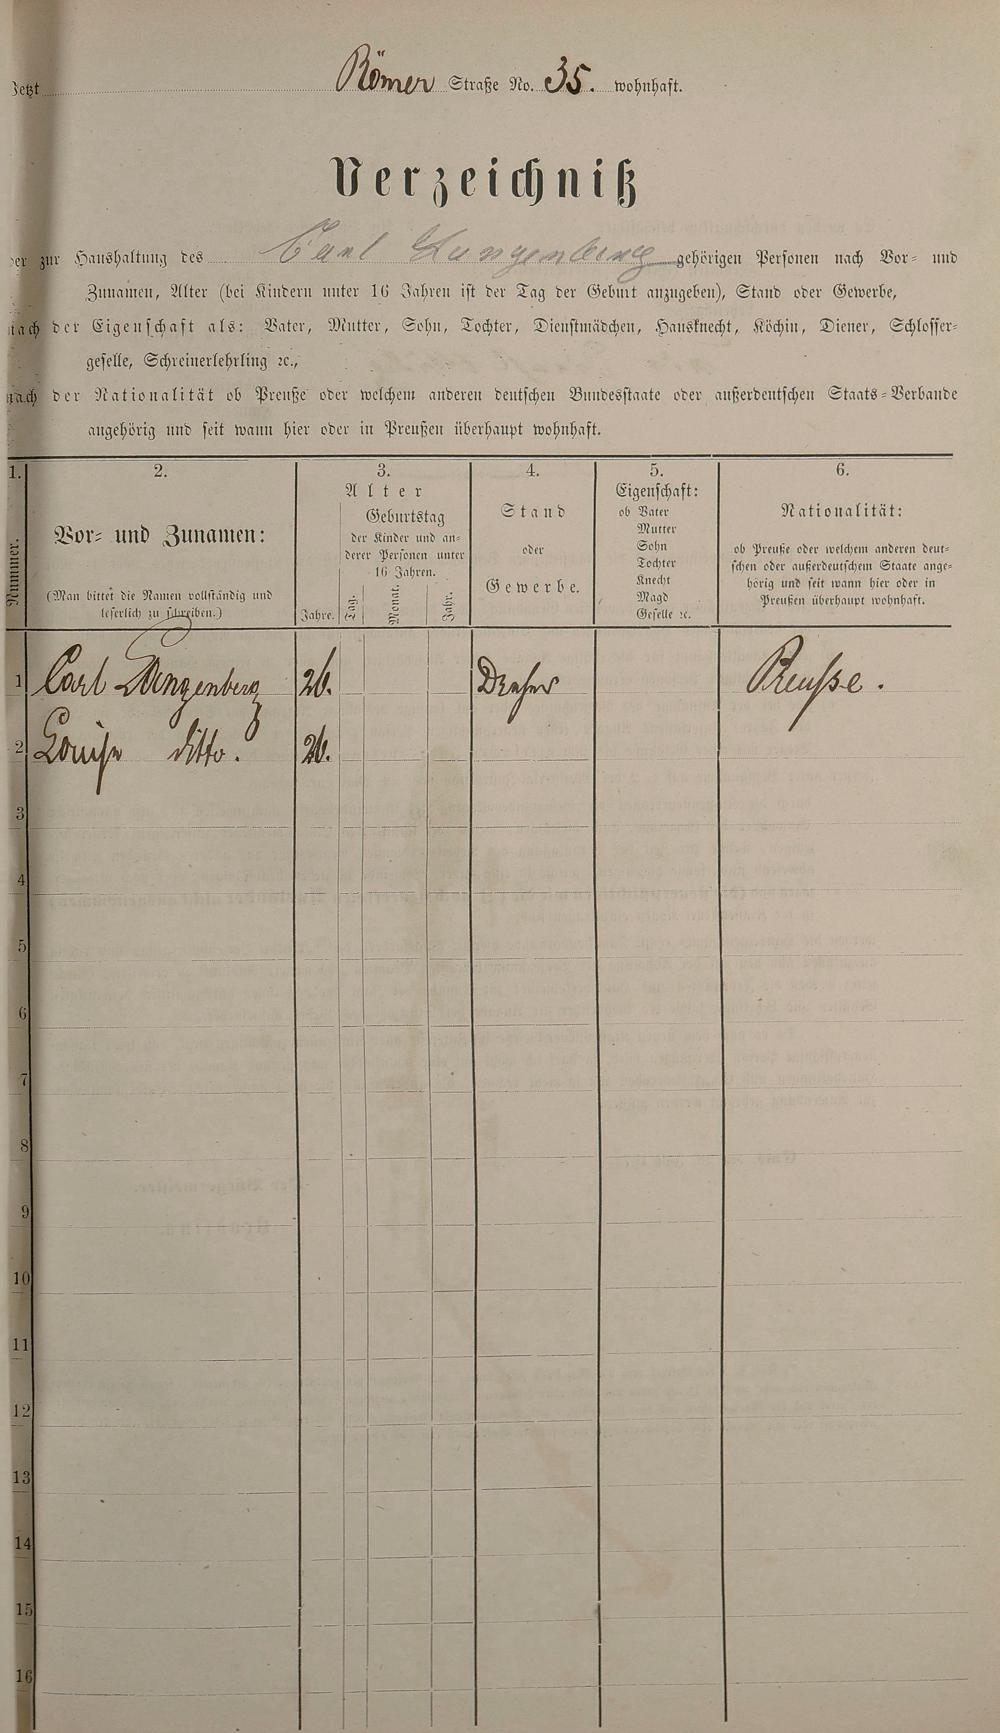 Jetzt Römer Straße No. 35. wohnhaft.
Verzeichniß
der zur Haushaltung des Carl Langenberg gehörigen Personen nach Vor- und
Zunamen, Alter (bei Kindern unter 16 Jahren ist der Tag der Geburt anzugeben), Stand oder Gewerbe,
nach der Eigenschaft als: Vater, Mutter, Sohn, Tochter, Dienstmädchen, Hausknecht, Köchin, Diener, Schlosser-
geselle, Schreinerlehrling ꝛc.,
nach der Nationalität ob Preuße oder welchem anderen deutschen Bundesstaate oder außerdeutschen Staats-Verbande
angehörig und seit wann hier oder in Preußen überhaupt wohnhaft.
1. 2. 3. 4. 5. 6.
Nummer.
Vor- und Zunamen:
(Man bittet die Namen vollständig und
leserlich zu schreiben.)
Alter
Geburtstag
der Kinder und an-
derer Personen unter
16 Jahren.
Jahre. Tag. Monat. Jahr.
Stand
oder
Gewerbe.
Eigenschaft:
ob Vater
Mutter
Sohn
Tochter
Knecht
Magd
Geselle ꝛc.
Nationalität:
ob Preuße oder welchem anderen deut-
schen oder außerdeutschem Staate ange-
hörig und seit wann hier oder in
Preußen überhaupt wohnhaft.
1 Carl Langenberg 26. Dreher Preusse.
2 Louise ditto. 26.
3
4
5
6
7
8
9
10
11
12
13
14
15
16